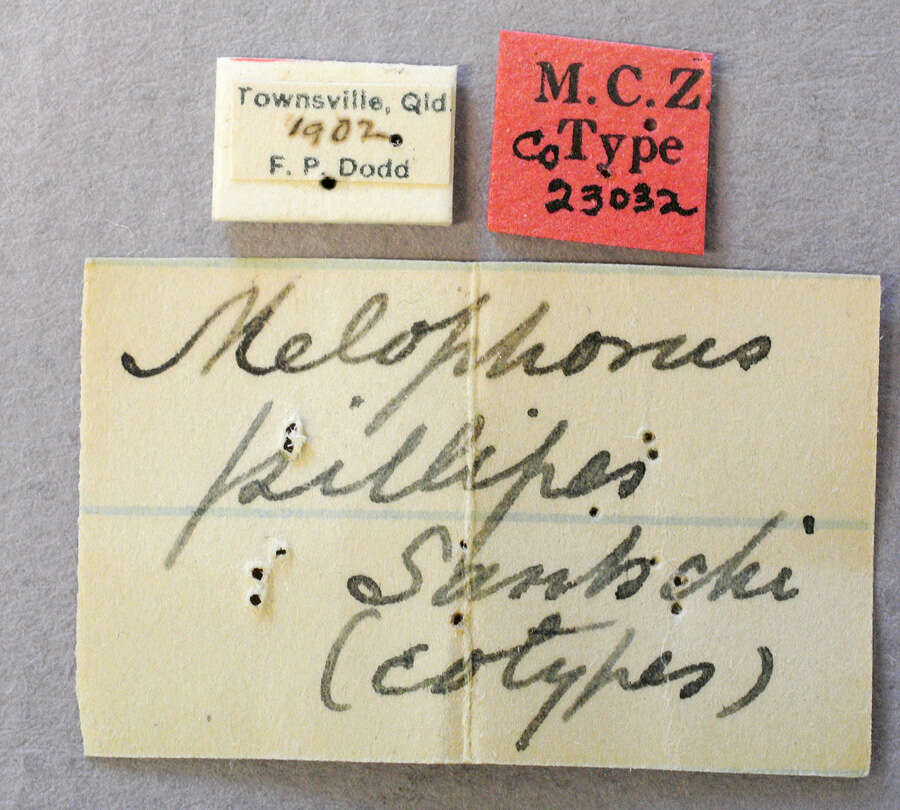 Townsville, Qld.
1902
F. P. Dodd
M.C.Z.
CoType
23032
Melophorus
pillipes
Santschi
(cotypes)